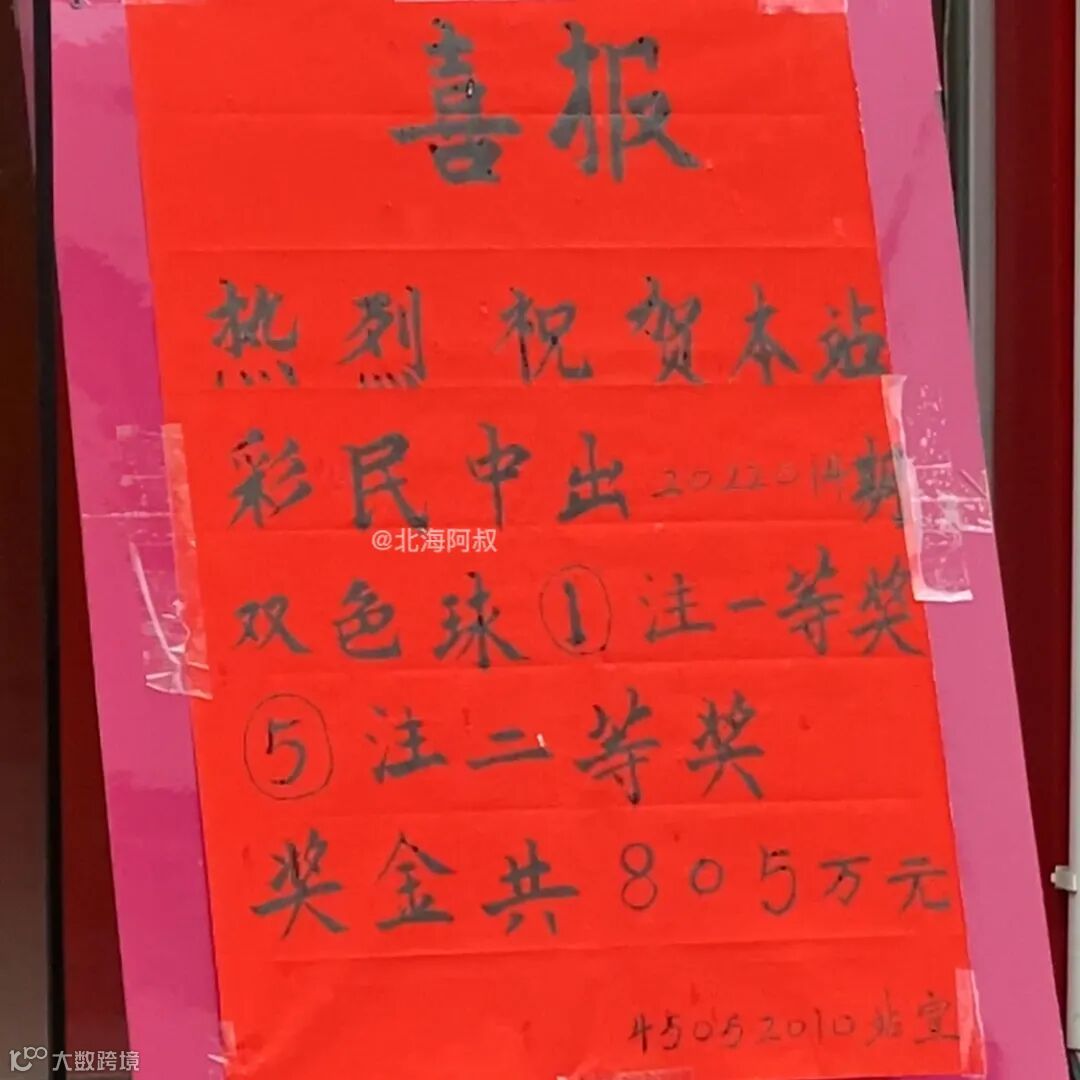 喜报
热烈祝贺本站
彩民中出2022014期
@北海阿叔
双色球①注一等奖
⑤注二等奖
奖金共805万元
45052010站宣
大数跨境